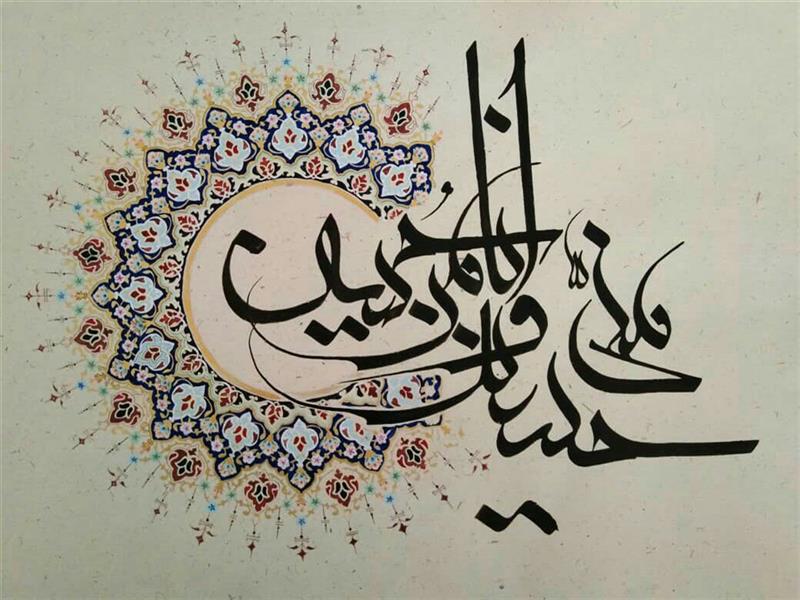 حسین منی و انا من حسین